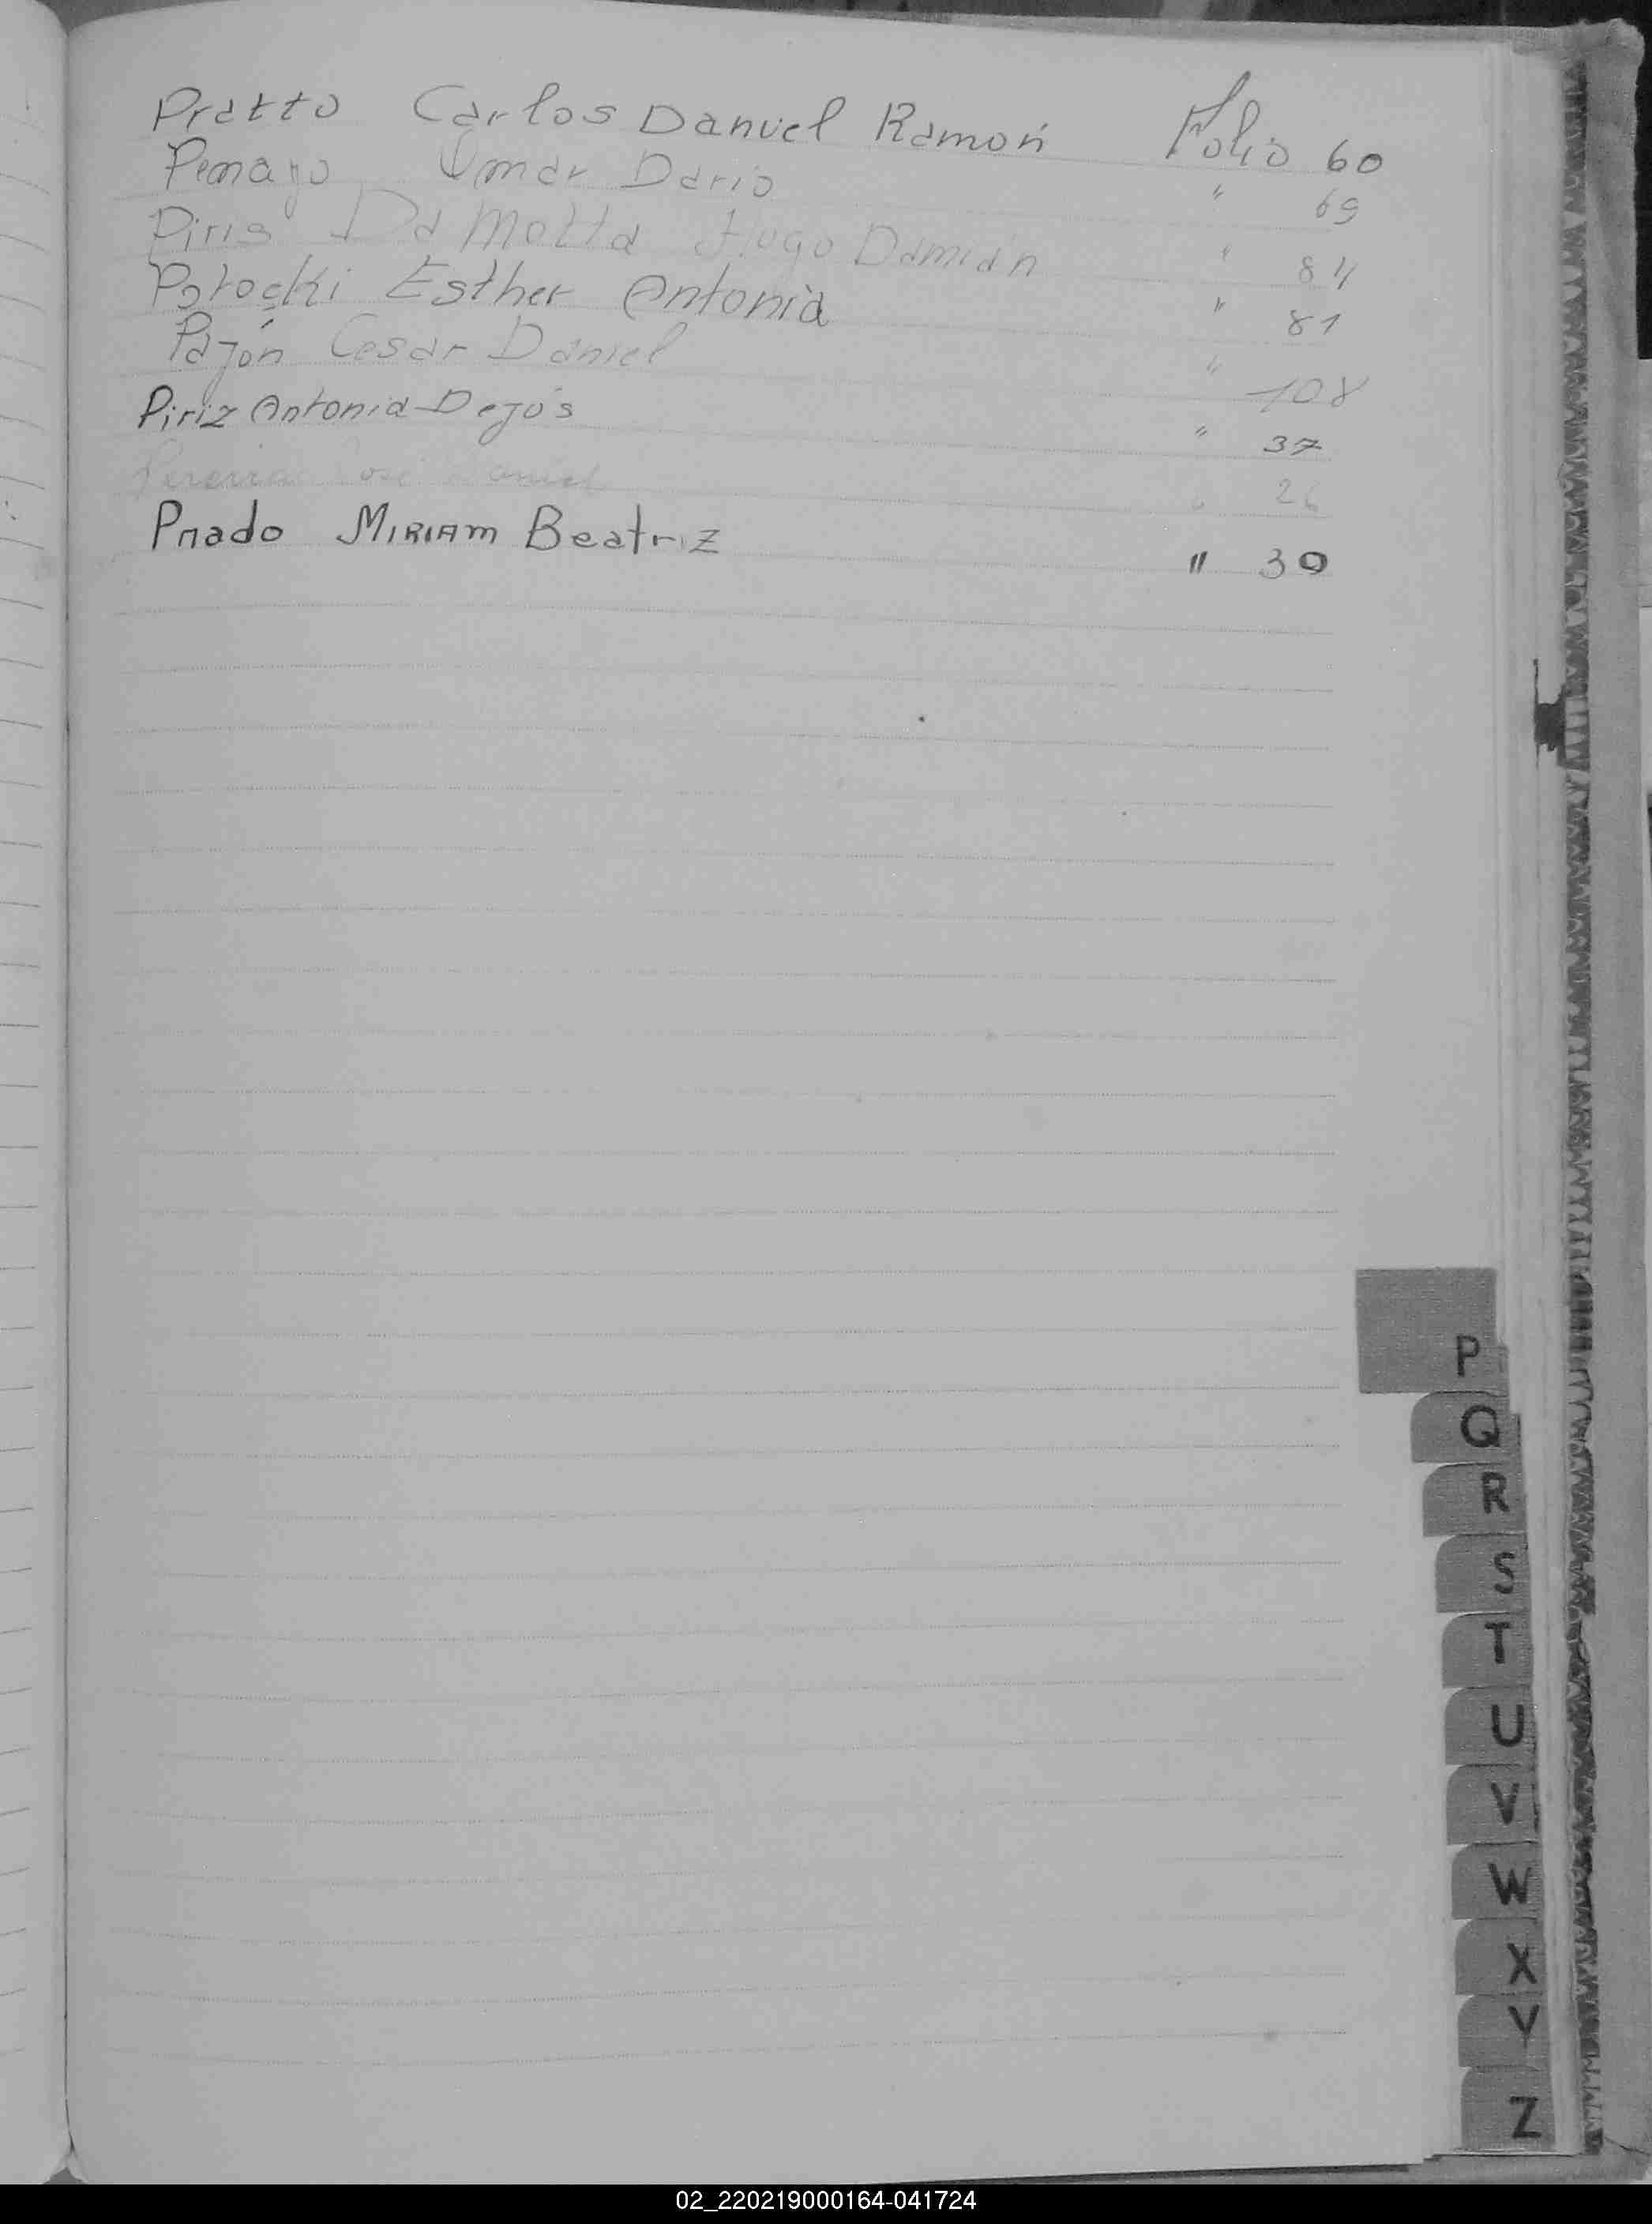 Pratto Carlos Danuel Ramón Folio 60
Omar Dario " 69
Piris Da Motta Hugo Damián " 84
Potocki Esther Antonia " 81
Pajón Cesar Daniel " 108
Piriz Antonia Dejós " 37
Pereira José Daniel " 26
Prado MIRIAM Beatriz " 30
P
Q
R
S
T
U
V
W
X
Y
Z
02_220219000164-041724